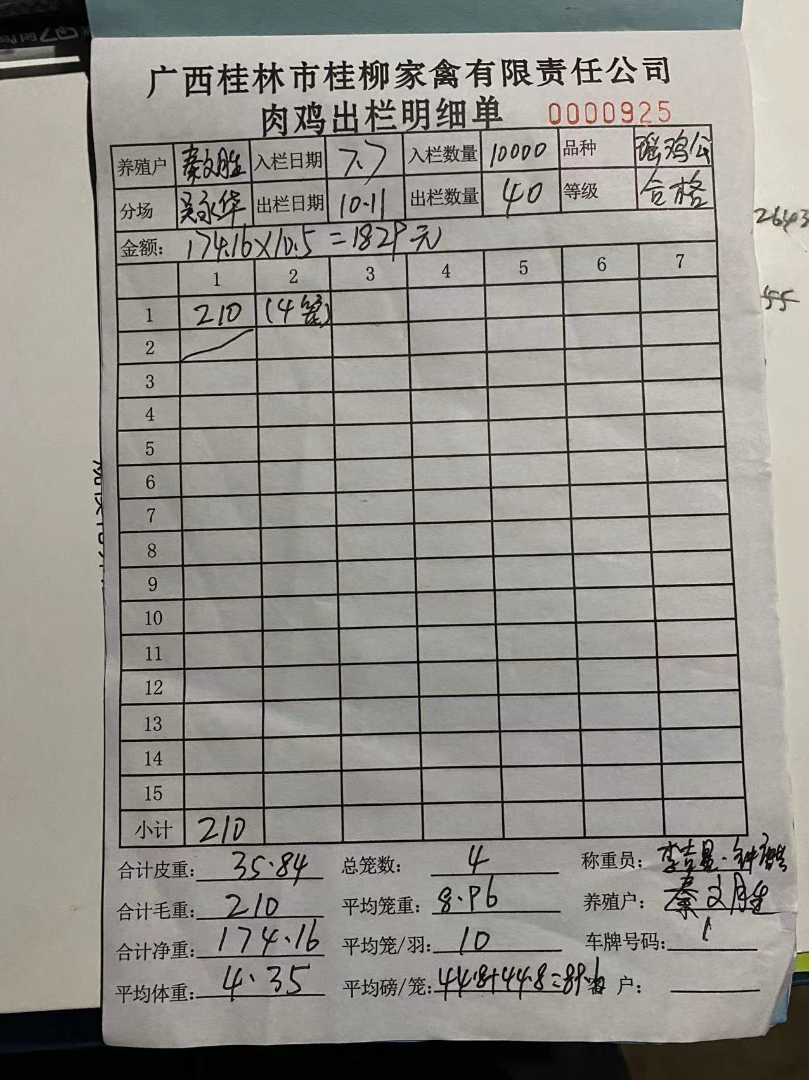 广西桂林市桂柳家禽有限责任公司
肉鸡出栏明细单 0000925
养殖户 秦文胜 入栏日期 7.7 入栏数量 10000 品种 瑶鸡公
分场 吴永华 出栏日期 10.11 出栏数量 40 等级 合格
金额: 174.16×10.5=1829元
1 2 3 4 5 6 7
1 210 (4笼)
2
3
4
5
6
7
8
9
10
11
12
13
14
15
小计 210
合计皮重: 35.84 总笼数: 4 称重员: 李吉
合计毛重: 210 平均笼重: 8.96 养殖户: 秦文胜
合计净重: 174.16 平均笼/羽: 10 车牌号码: 1
平均体重: 4.35 平均磅/笼: 44.8+44.8=89.6 户: